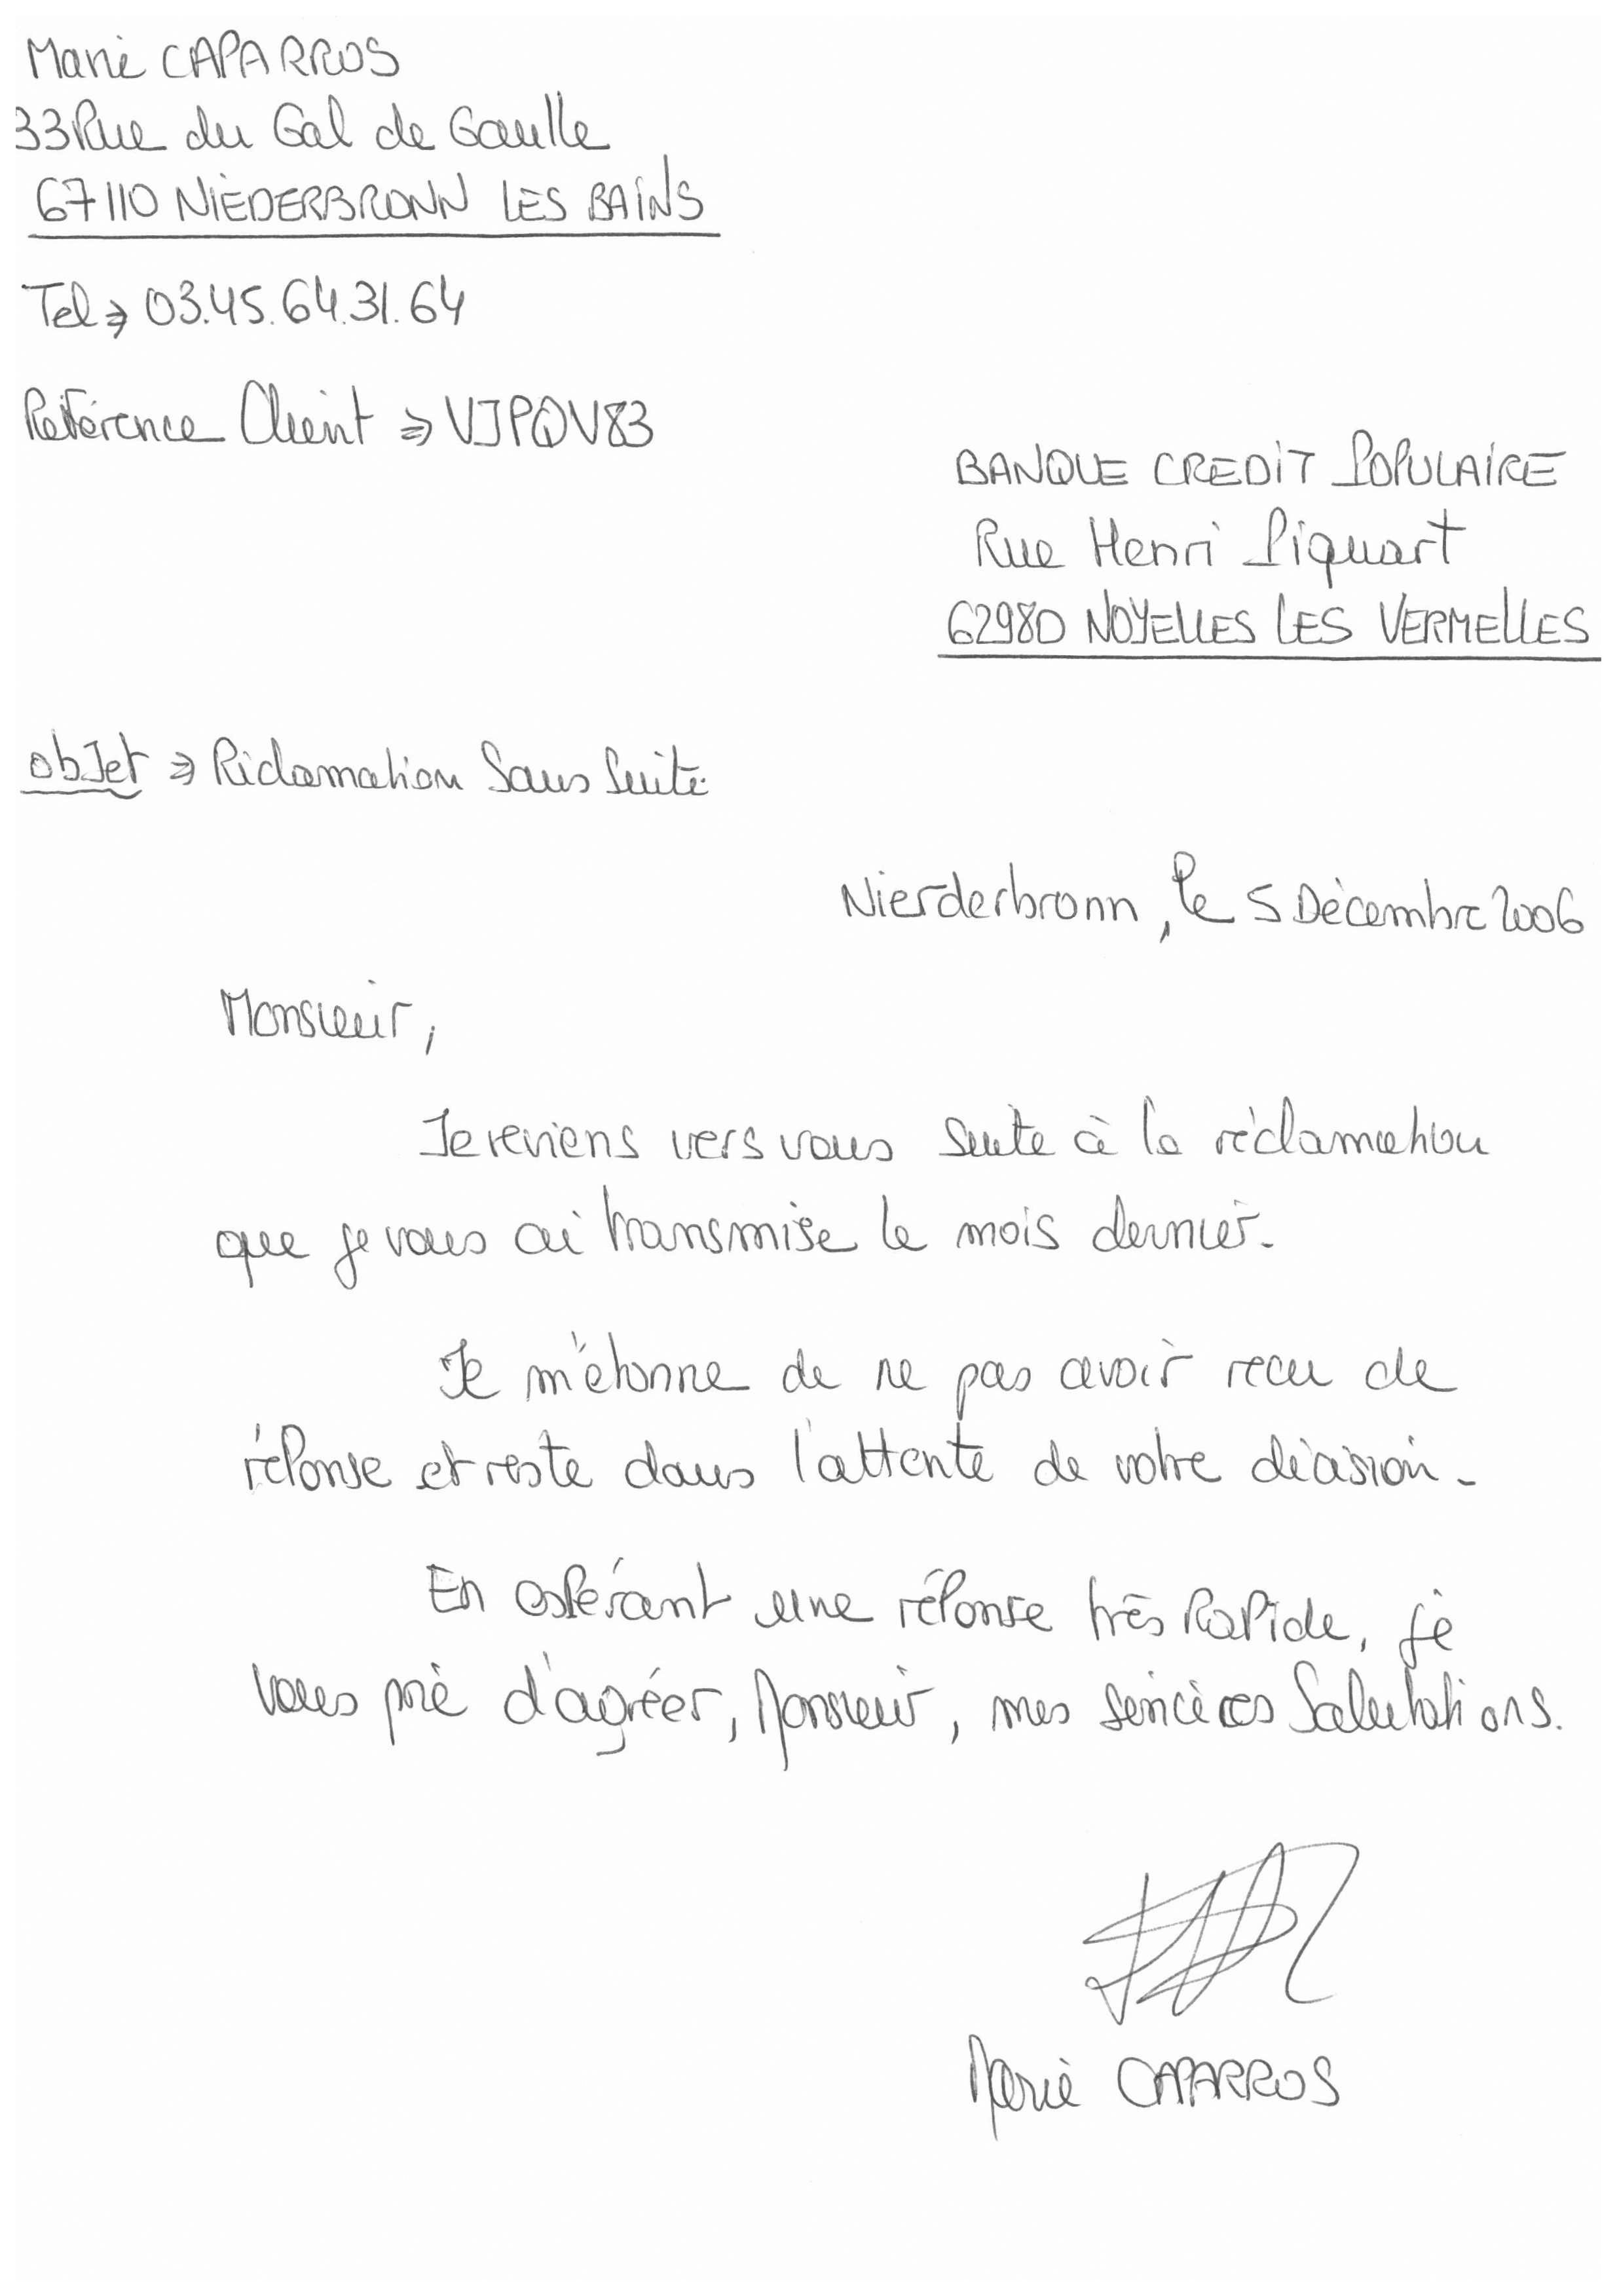 Marie CAPARROS
33 Rue du Gal de Gaulle
67110 NIEDERBRONN LES BAINS
Tel → 03.45.64.31.64
Référence Client → VJPQV83
BANQUE CREDIT POPULAIRE
Rue Henri Piquart
62980 NOYELLES LES VERMELLES
objet → Réclamation Sans Suite
Nierderbronn, le 5 Décembre 2006
Monsieur,
Je reviens vers vous suite à la réclamation
que je vous ai transmise le mois dernier.
Je m'étonne de ne pas avoir recu de
réponse et reste dans l'attente de votre décision.
En espérant une réponse très Rapide, je
vous prie d'agréer, Monsieur, mes sincères Salutations.
Marie CAPARROS